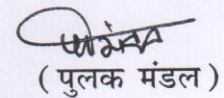 ( पुलक मंडल )